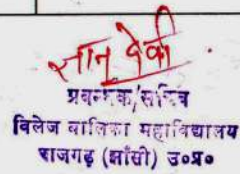 ज्ञान देवी
प्रबन्धक/सचिव
विलेज बालिका महाविद्यालय
राजगढ़ (झाँसी) उ०प्र०